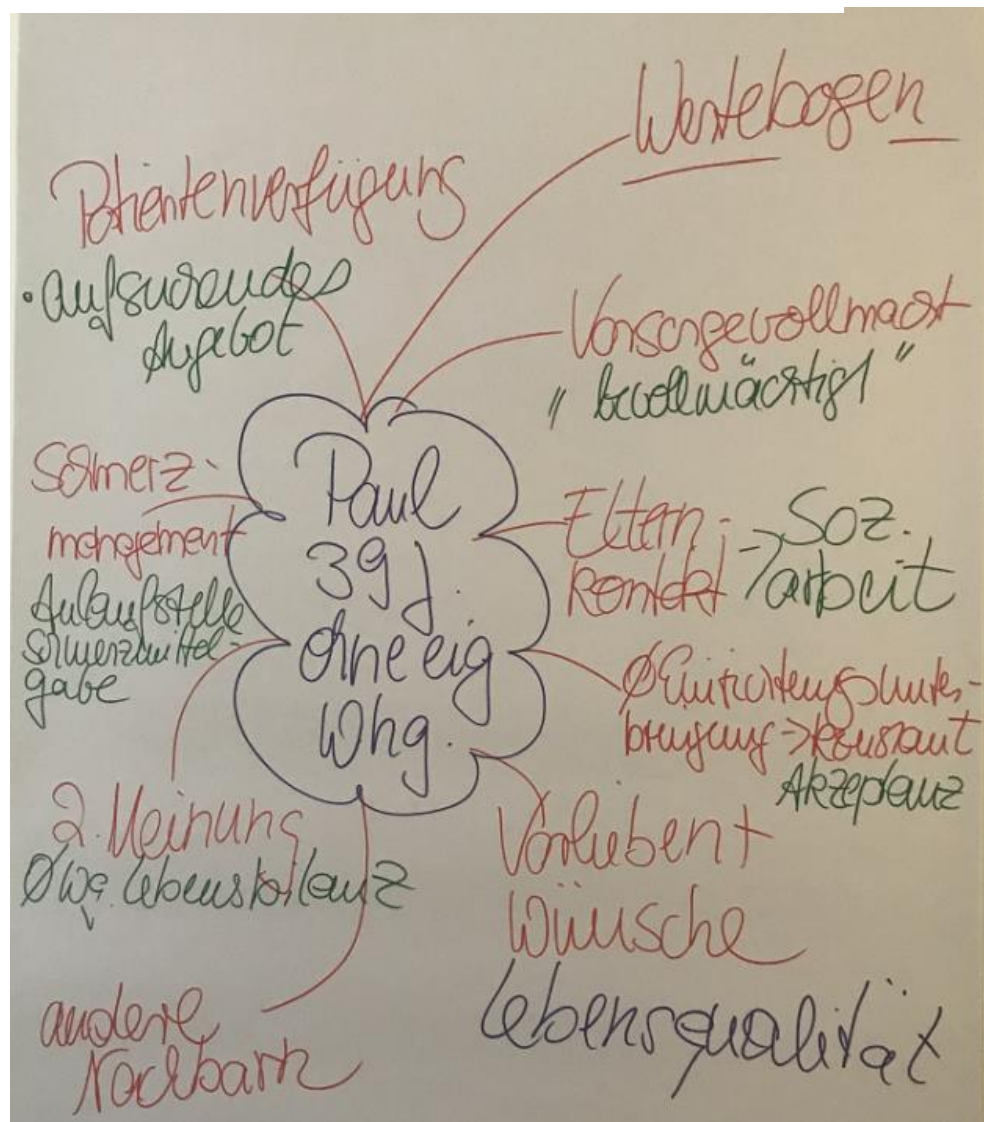 Wertebogen
Patientenverfügung
• aufsuchendes
Angebot
Vorsorgevollmacht
"bevollmächtigt"
Schmerz-
management
Anlaufstelle
Schmerzmittel-
gabe
Paul
39 J.
ohne eig
Whg.
Eltern-
kontakt
→ Soz.
arbeit
Ø Einrichtungsunter-
bringung → konstant
Akzeptanz
2. Meinung
Ø wg. Lebensbilanz
Vorlieben +
Wünsche
Lebensqualität
andere
Nachbarn